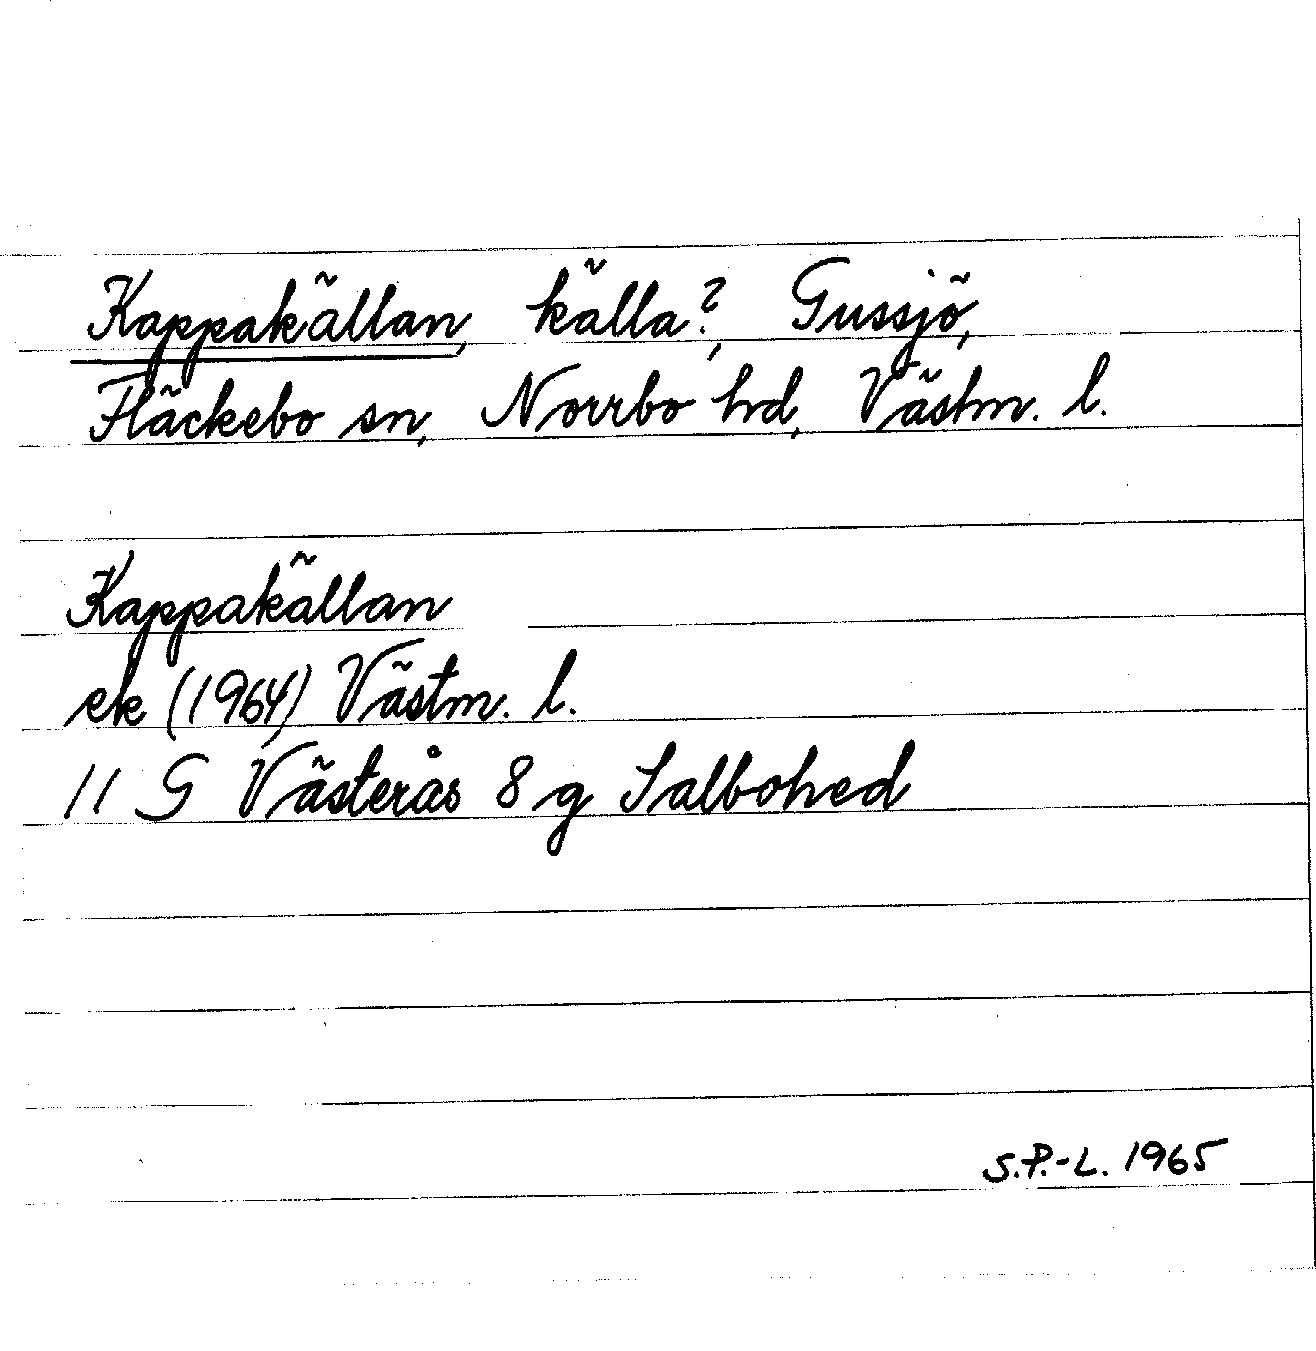 Kappakällan, källa?, Gussjö,
Fläckebo sn, Norrbo hd, Västm. l.
Kappakällan
ek (1964) Västm. l.
11 G Västerås 8 g Salbohed
S.P.-L. 1965